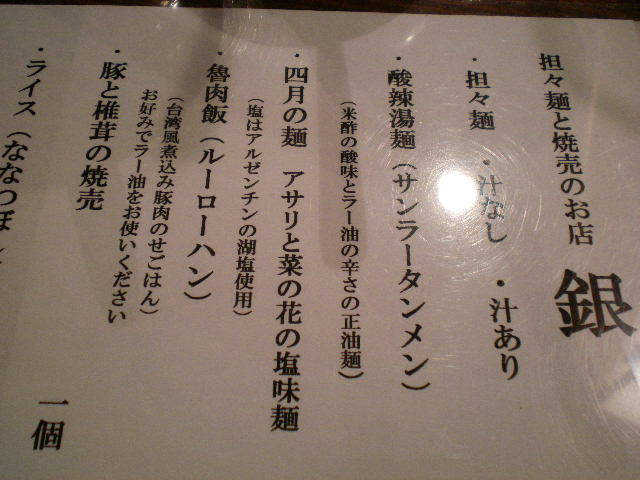 担々麺と焼売のお店 銀
・担々麺 ・汁なし ・汁あり
・酸辣湯麺（サンラータンメン）
（米酢の酸味とラー油の辛さの正油麺）
・四月の麺 アサリと菜の花の塩味麺
（塩はアルゼンチンの湖塩使用）
・魯肉飯（ルーローハン）
（台湾風煮込み豚肉のせごはん）
お好みでラー油をお使いください
・豚と椎茸の焼売 一個
・ライス（ななつぼし